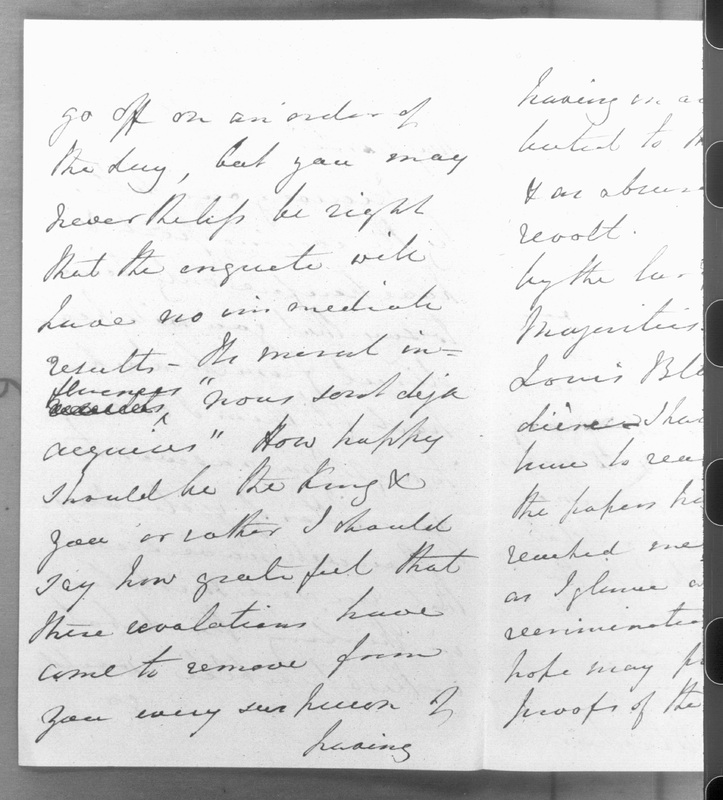 go off on an order of
the day, but you may
nevertheless be right
that the enquete will
have no immediate
results - The moral in=
fluences "nous sont deja
acquises" How happy
should be the King &
you or rather I should
say how grateful that
these revelations have
come to remove from
you every suspicion of
having
having in
buted to
& an absur
revolt.
by the
Majorities
Louis Bla
I hav
time to rea
the papers ha
reached me
as I glance
recriminatio
hope may
proofs of the